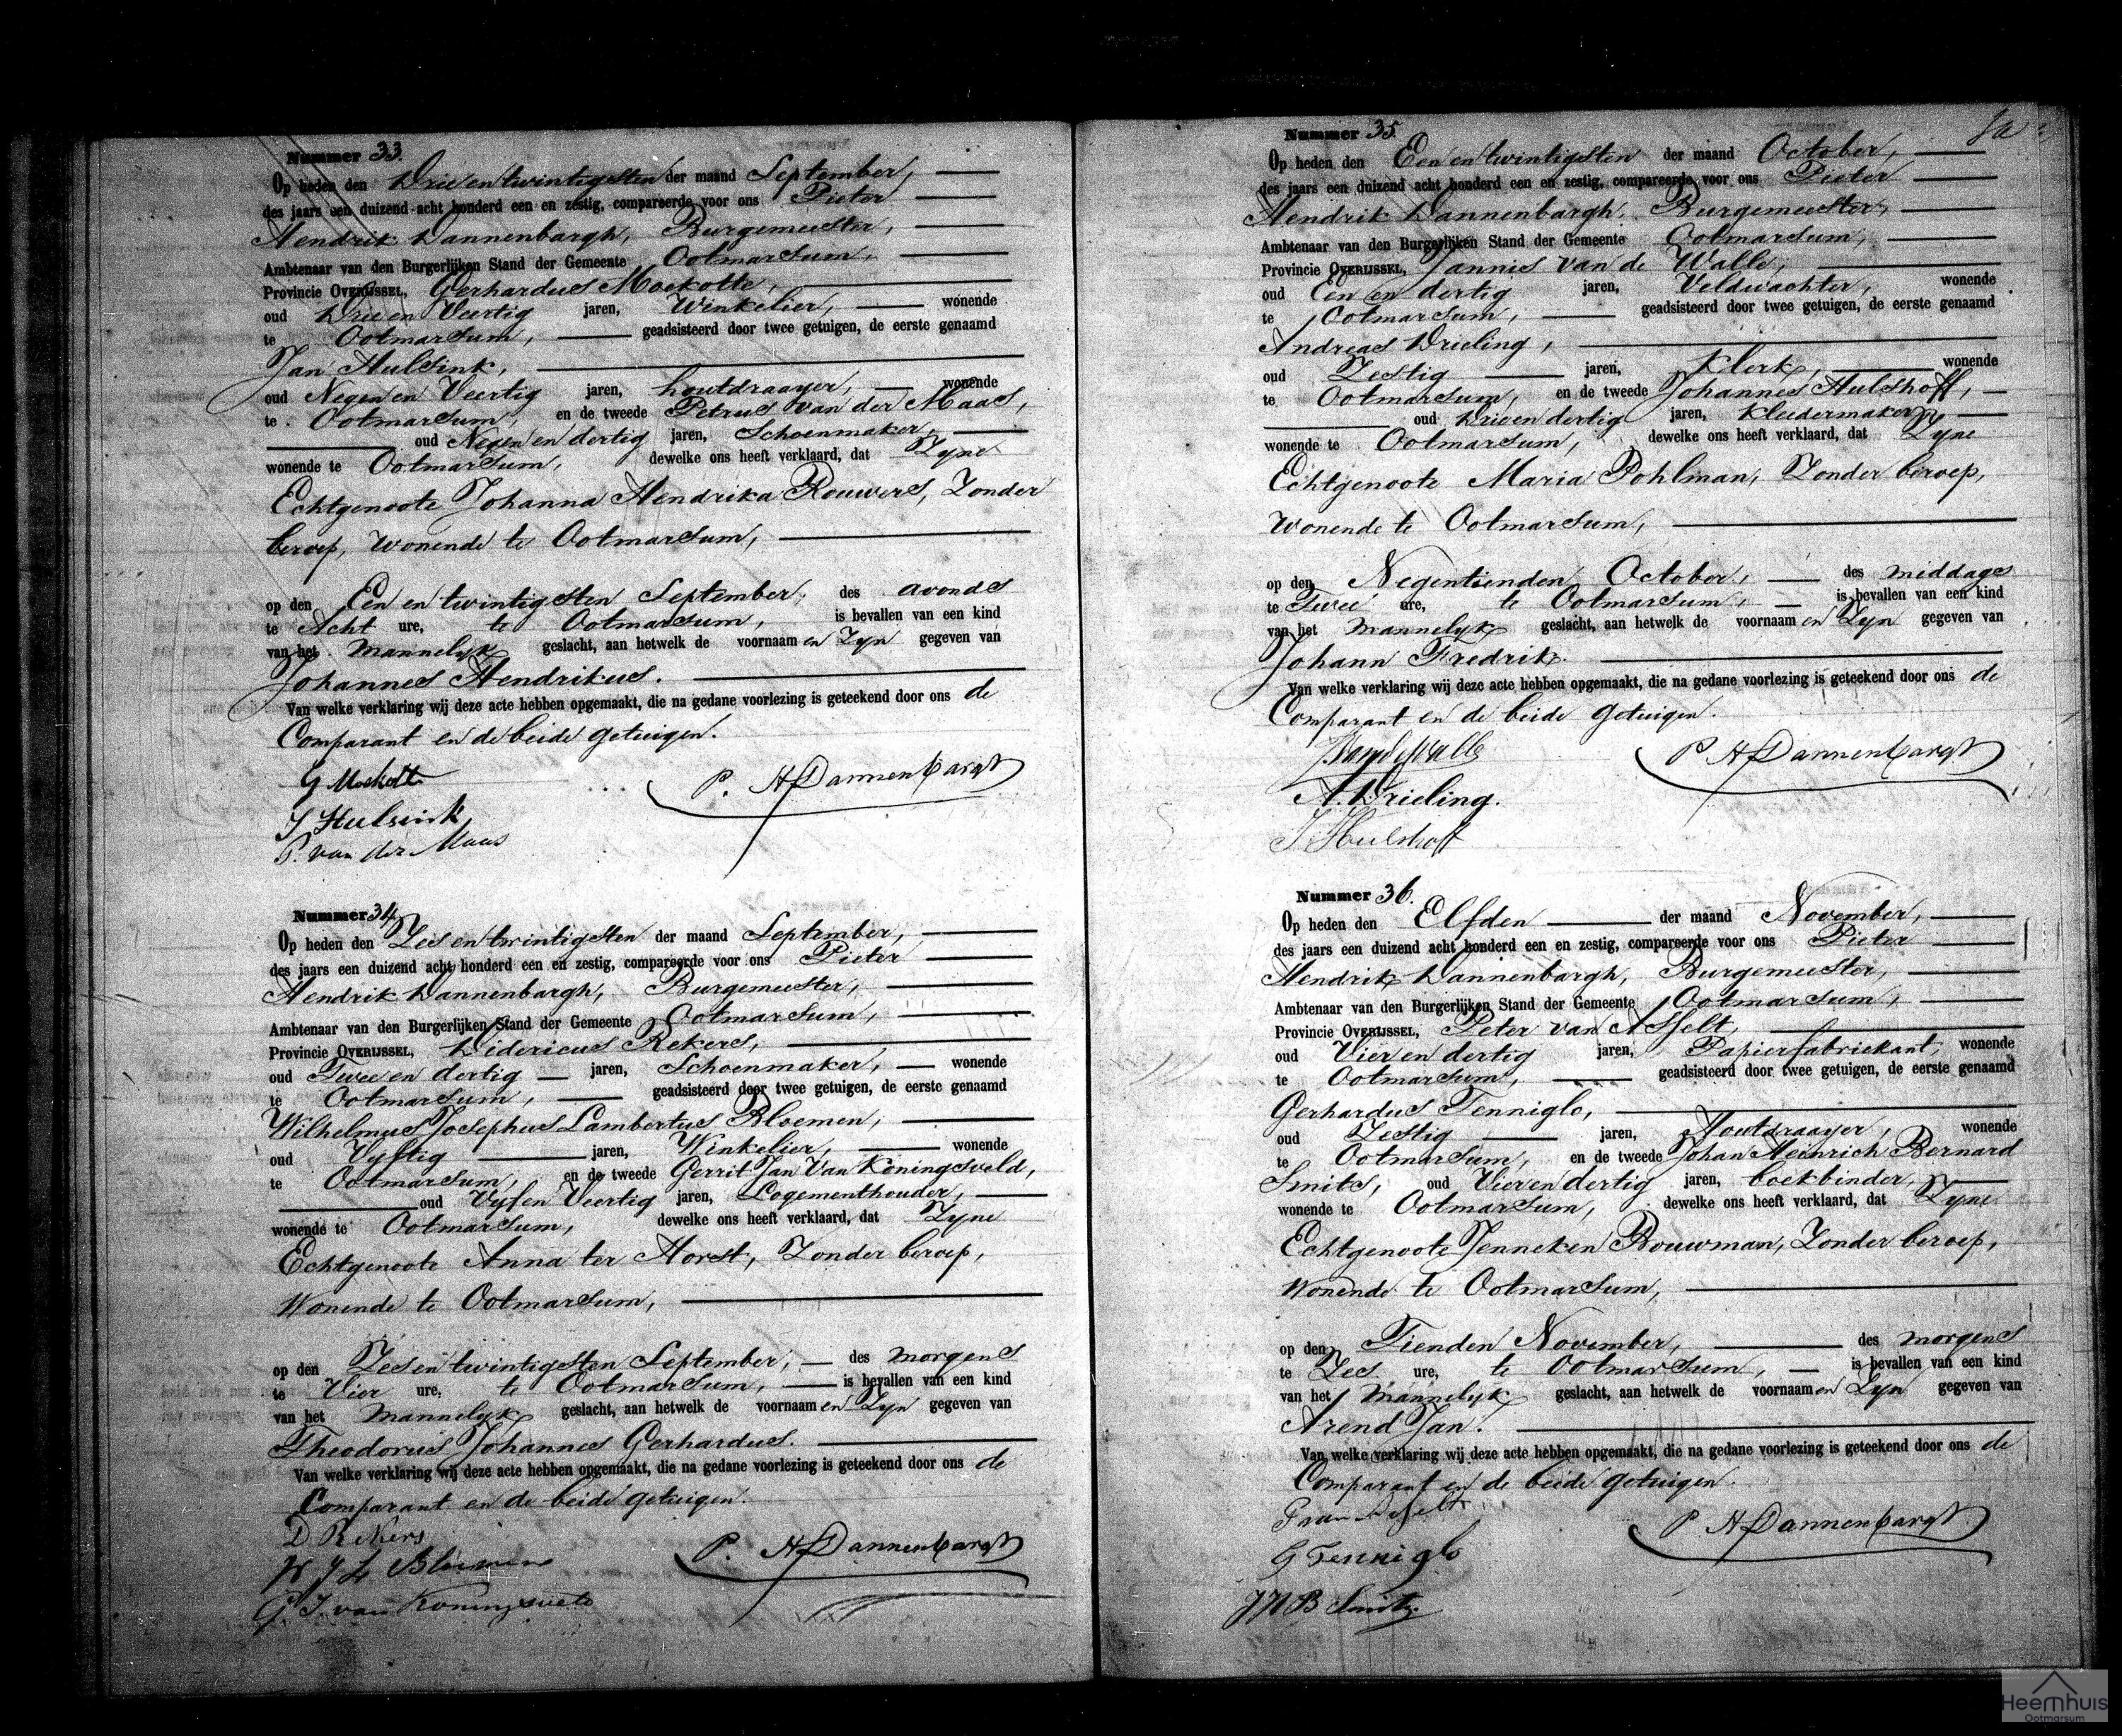 Nummer 33.
Op heden den Drie en twintigsten der maand September,
des jaars een duizend acht honderd een en zestig, compareerde voor ons Pieter
Hendrik Dannenbargh, Burgemeester,
Ambtenaar van den Burgerlijken Stand der Gemeente Ootmarsum,
Provincie OVERIJSSEL, Gerhardus Moekotte,
oud Drie en Veertig jaren, Winkelier, wonende
te Ootmarsum, geadsisteerd door twee getuigen, de eerste genaamd
Jan Hulsink,
oud Negen en Veertig jaren, houtdraayer, wonende
te Ootmarsum, en de tweede Petrus van der Maas,
oud Negen en dertig jaren, Schoenmaker,
wonende te Ootmarsum, dewelke ons heeft verklaard, dat Zyne
Echtgenoote Johanna Hendrika Rouwers, Zonder
beroep, wonende te Ootmarsum,
op den Een en twintigsten September, des avonds
te Acht ure, te Ootmarsum, is bevallen van een kind
van het Mannelyk geslacht, aan hetwelk de voornaam en Zyn gegeven van
Johannes Hendrikus.
Van welke verklaring wij deze acte hebben opgemaakt, die na gedane voorlezing is geteekend door ons de
Comparant en de beide getuigen.
G Moekotte
P. H Dannenbargh
J Hulsink
P. van der Maas
Nummer 34
Op heden den Zes en twintigsten der maand September,
des jaars een duizend acht honderd een en zestig, compareerde voor ons Pieter
Hendrik Dannenbargh, Burgemeester,
Ambtenaar van den Burgerlijken Stand der Gemeente Ootmarsum,
Provincie OVERIJSSEL, Didericus Rekers,
oud Twee en dertig jaren, Schoenmaker, wonende
te Ootmarsum, geadsisteerd door twee getuigen, de eerste genaamd
Wilhelmus Josephus Lambertus Bloemen,
oud Vyftig jaren, Winkelier, wonende
te Ootmarsum, en de tweede Gerrit Jan Van Koningsveld,
oud Vyf en Veertig jaren, Logementhouder,
wonende te Ootmarsum, dewelke ons heeft verklaard, dat Zyne
Echtgenoote Anna ter Horst, Zonder beroep,
Wonende te Ootmarsum,
op den Zes en twintigsten September, des morgens
te Vier ure, te Ootmarsum, is bevallen van een kind
van het Mannelyk geslacht, aan hetwelk de voornaam en Zyn gegeven van
Theodorus Johannes Gerhardus.
Van welke verklaring wij deze acte hebben opgemaakt, die na gedane voorlezing is geteekend door ons de
Comparant en de beide getuigen.
D Rekers
P. H Dannenbargh
W J L Bloemen
G. J. van Koningsveld
Nummer 35.
Op heden den Een en twintigsten der maand October,
des jaars een duizend acht honderd een en zestig, compareerde voor ons Pieter
Hendrik Dannenbargh, Burgemeester,
Ambtenaar van den Burgerlijken Stand der Gemeente Ootmarsum,
Provincie OVERIJSSEL, Jannis van de Walle,
oud Een en dertig jaren, Veldwachter, wonende
te Ootmarsum, geadsisteerd door twee getuigen, de eerste genaamd
Andreas Drieling,
oud Zestig jaren, Klerk, wonende
te Ootmarsum, en de tweede Johannes Hulshoff,
oud Drie en dertig jaren, Kleedermaker,
wonende te Ootmarsum, dewelke ons heeft verklaard, dat Zyne
Echtgenoote Maria Pohlman, Zonder beroep,
Wonende te Ootmarsum,
op den Negentienden October, des middags
te Twee ure, te Ootmarsum, is bevallen van een kind
van het Mannelyk geslacht, aan hetwelk de voornaam en Zyn gegeven van
Johann Fredrik.
Van welke verklaring wij deze acte hebben opgemaakt, die na gedane voorlezing is geteekend door ons de
Comparant en de beide getuigen.
J. van de Walle
P H Dannenbargh
A. Drieling.
J Hulshoff
Nummer 36.
Op heden den Elfden der maand November,
des jaars een duizend acht honderd een en zestig, compareerde voor ons Pieter
Hendrik Dannenbargh, Burgemeester,
Ambtenaar van den Burgerlijken Stand der Gemeente Ootmarsum,
Provincie OVERIJSSEL, Peter van Asselt,
oud Vier en dertig jaren, Papierfabriekant, wonende
te Ootmarsum, geadsisteerd door twee getuigen, de eerste genaamd
Gerhardus Tenniglo,
oud Zestig jaren, Houtdraayer, wonende
te Ootmarsum, en de tweede Johan Heinrich Bernard
Smits, oud Vier en dertig jaren, boekbinder,
wonende te Ootmarsum, dewelke ons heeft verklaard, dat Zyne
Echtgenoote Jenneken Bouwman, Zonder beroep,
Wonende te Ootmarsum,
op den Tienden November, des morgens
te Zes ure, te Ootmarsum, is bevallen van een kind
van het Mannelyk geslacht, aan hetwelk de voornaam en Zyn gegeven van
Arend Jan.
Van welke verklaring wij deze acte hebben opgemaakt, die na gedane voorlezing is geteekend door ons de
Comparant en de beide getuigen.
P van Asselt
P H Dannenbargh
G Tenniglo
J H B Smits
Heemhuis
Ootmarsum